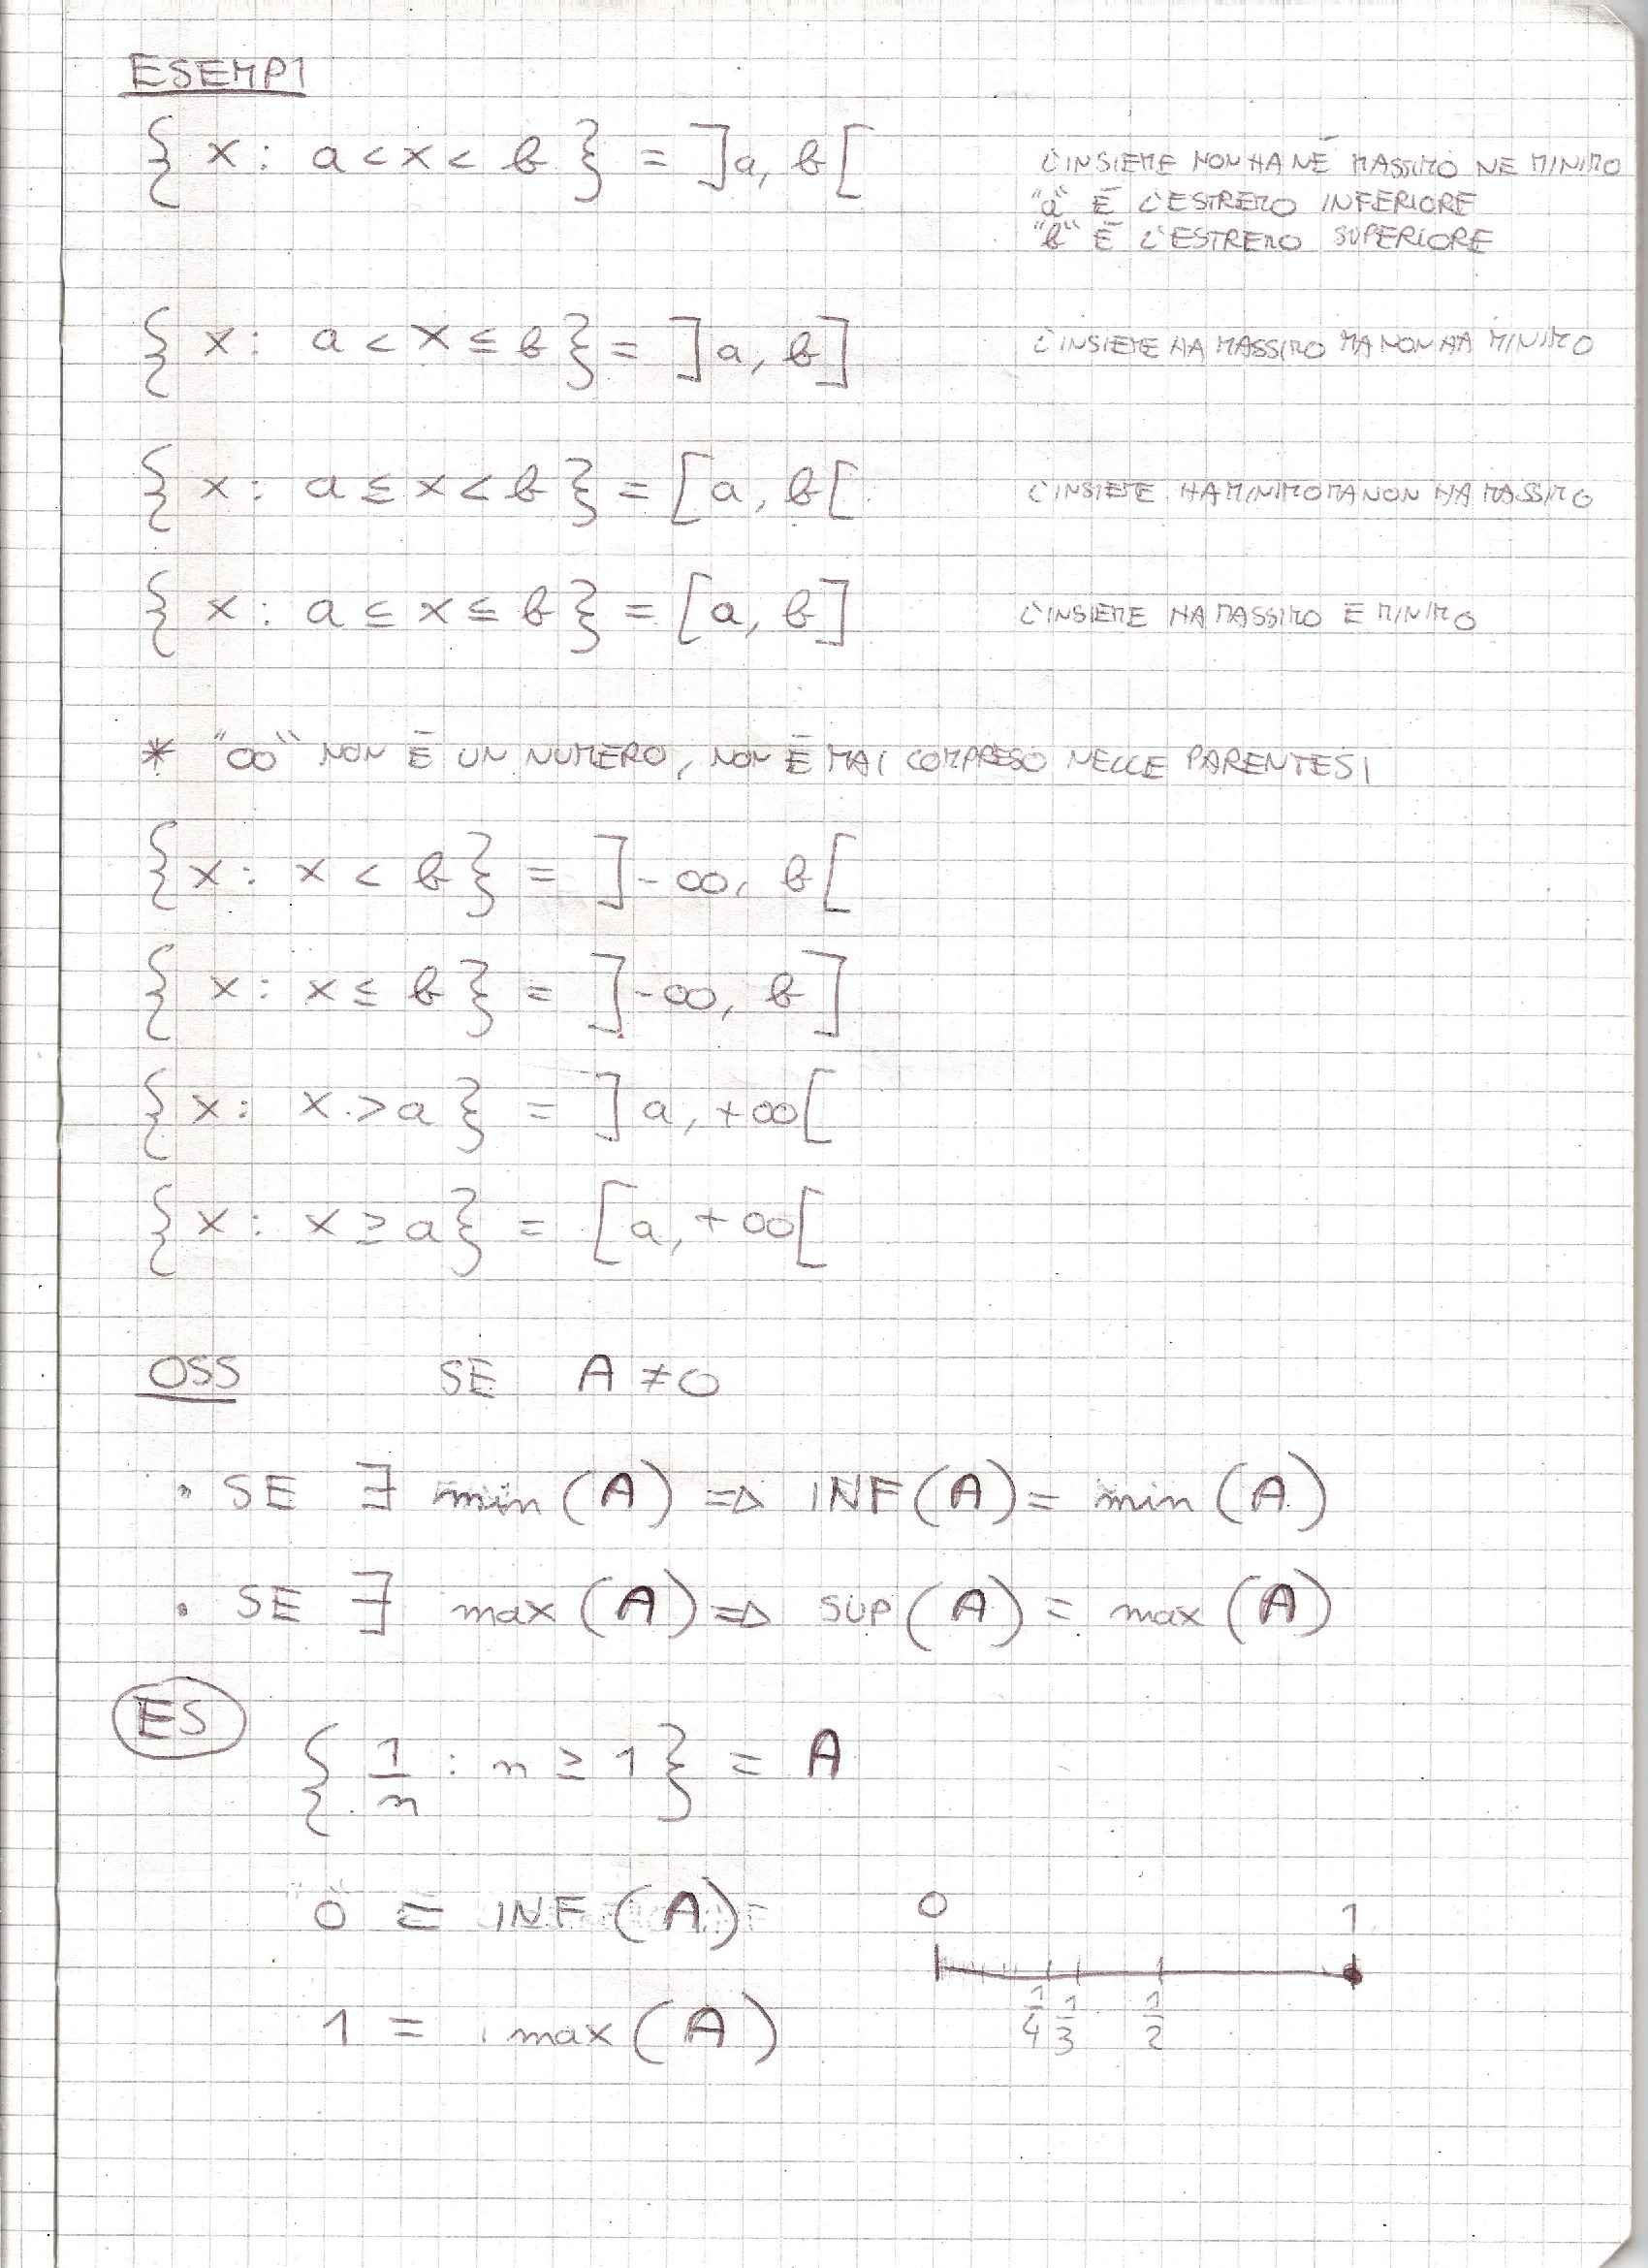 ESEMPI
{ x : a < x < b } = ]a, b[ L'INSIEME NON HA NÉ MASSIMO NE MINIMO
"a" È L'ESTREMO INFERIORE
"b" È L'ESTREMO SUPERIORE
{ x : a < x ≤ b } = ]a, b] L'INSIEME HA MASSIMO MA NON HA MINIMO
{ x : a ≤ x < b } = [a, b[ L'INSIEME HA MINIMO MA NON HA MASSIMO
{ x : a ≤ x ≤ b } = [a, b] L'INSIEME HA MASSIMO E MINIMO
* "∞" NON È UN NUMERO, NON È MAI COMPRESO NELLE PARENTESI
{ x : x < b } = ]-∞, b[
{ x : x ≤ b } = ]-∞, b]
{ x : x > a } = ]a, +∞[
{ x : x ≥ a } = [a, +∞[
OSS SE A ≠ 0
• SE ∃ min (A) ⇒ INF (A) = min (A)
• SE ∃ max (A) ⇒ SUP (A) = max (A)
ES
{ 1/n : n ≥ 1 } = A
0 = INF (A)
0 1
1/4 1/3 1/2
1 = max (A)